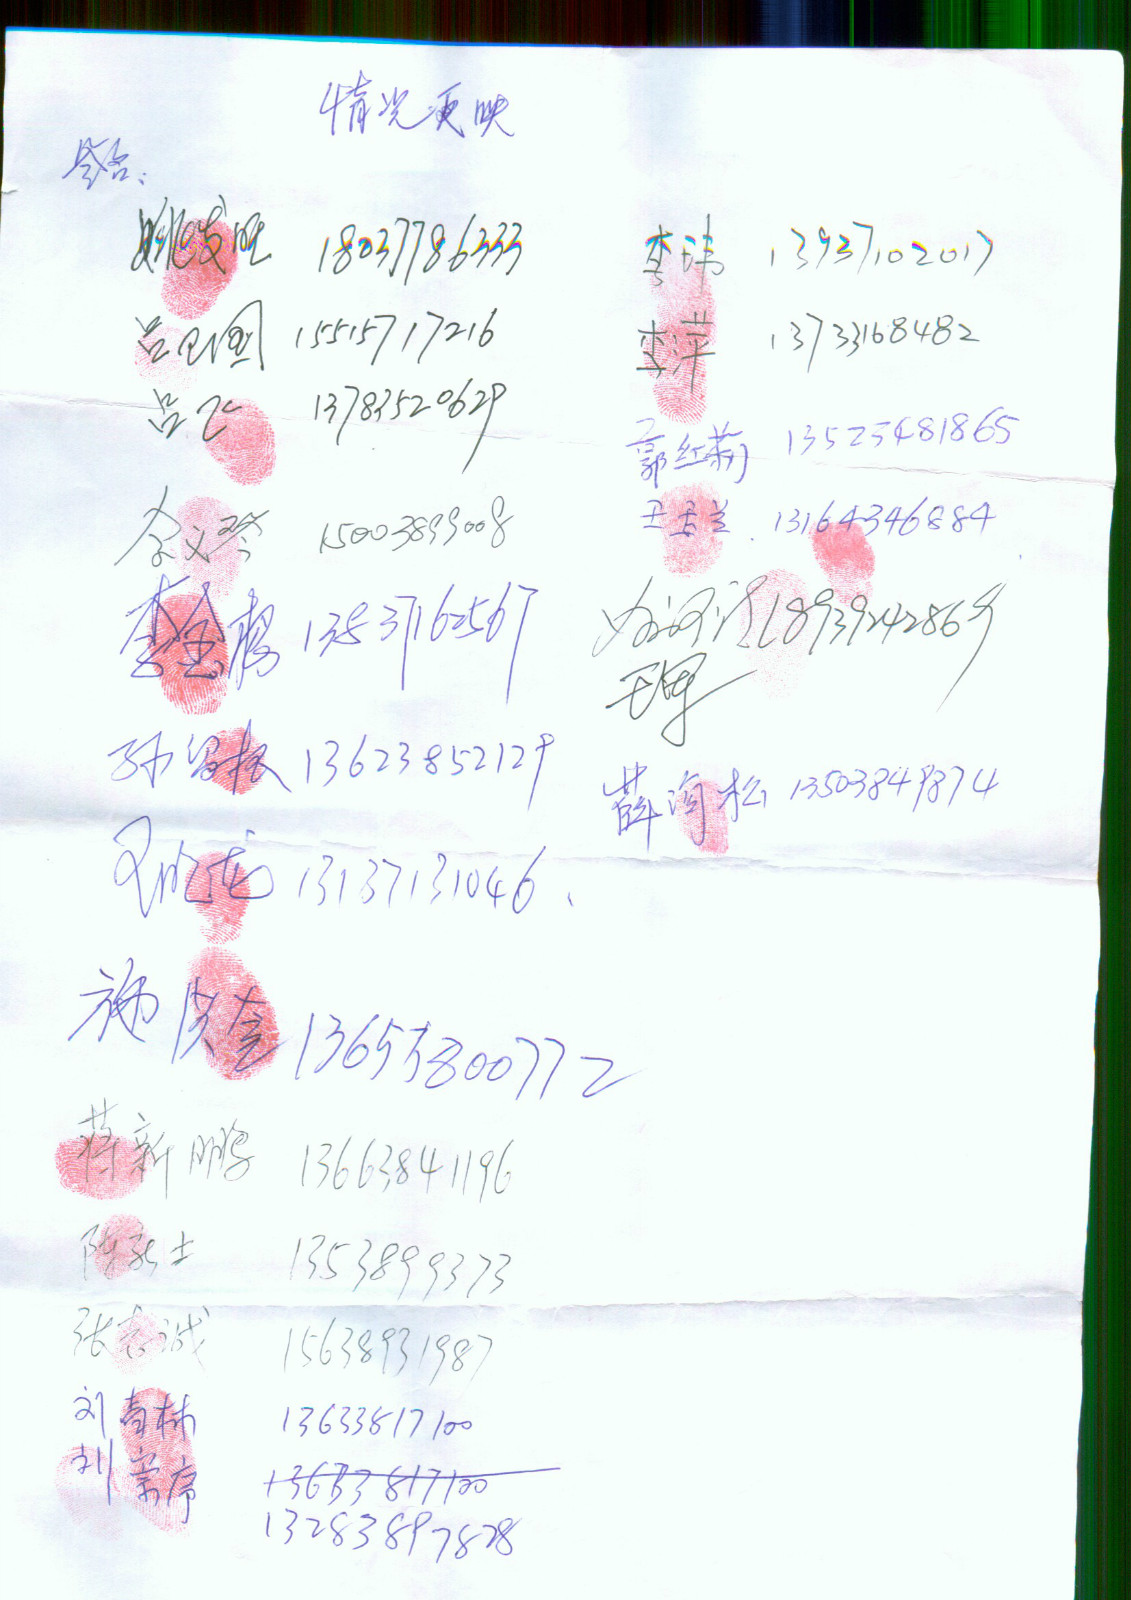 情况反映
签名:
姚发旺 18037786333
吕 国 15515717216
吕飞 13783520629
余义 15003899008
李金 13837162567
孙留拴 13623852129
王 龙 13137131046
施洪奎 13653800772
蒋新鹏 13663841196
陈 士 1353899373
张志诚 15638931987
刘青林 13633817100
刘宗序 13633817100
13283897828
李涛 13937102017
李萍 13733168482
郭红莉 13523481865
王玉兰 13164346884
18939242869
王
薛海松 13503849874